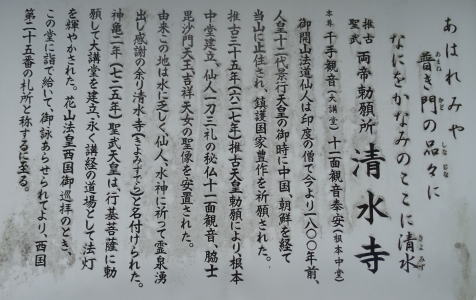 あはれみや
普き門の品々に
なにをかなみのここに清水
推古
聖武 両帝勅願所 清水寺
本尊 千手観音(大講堂)十一面観音奉安(根本中堂)
御開山法道仙人は印度の僧で今より一八〇〇年前、
人皇十二代景行天皇の御時に中国、朝鮮を経て
当山に止住され、鎮護国家豊作を祈願された。
推古三十五年(六二七年)推古天皇勅願により根本
中堂建立、仙人一刀三礼の秘仏十一面観音、脇士
毘沙門天王、吉祥天女の聖像を安置された。
由来この地は水に乏しく仙人、水神に祈って霊泉湧
出し感謝の余り清水寺(きよみずでら)と名付けられた。
神亀二年(七二五年)聖武天皇は、行基菩薩に勅
願して大講堂を建立、永く講経の道場として法灯
を輝やかされた。花山法皇西国御巡拝のとき、
この堂に詣で給いて、御詠あらせられてより、西国
第二十五番の札所と称するに至る。